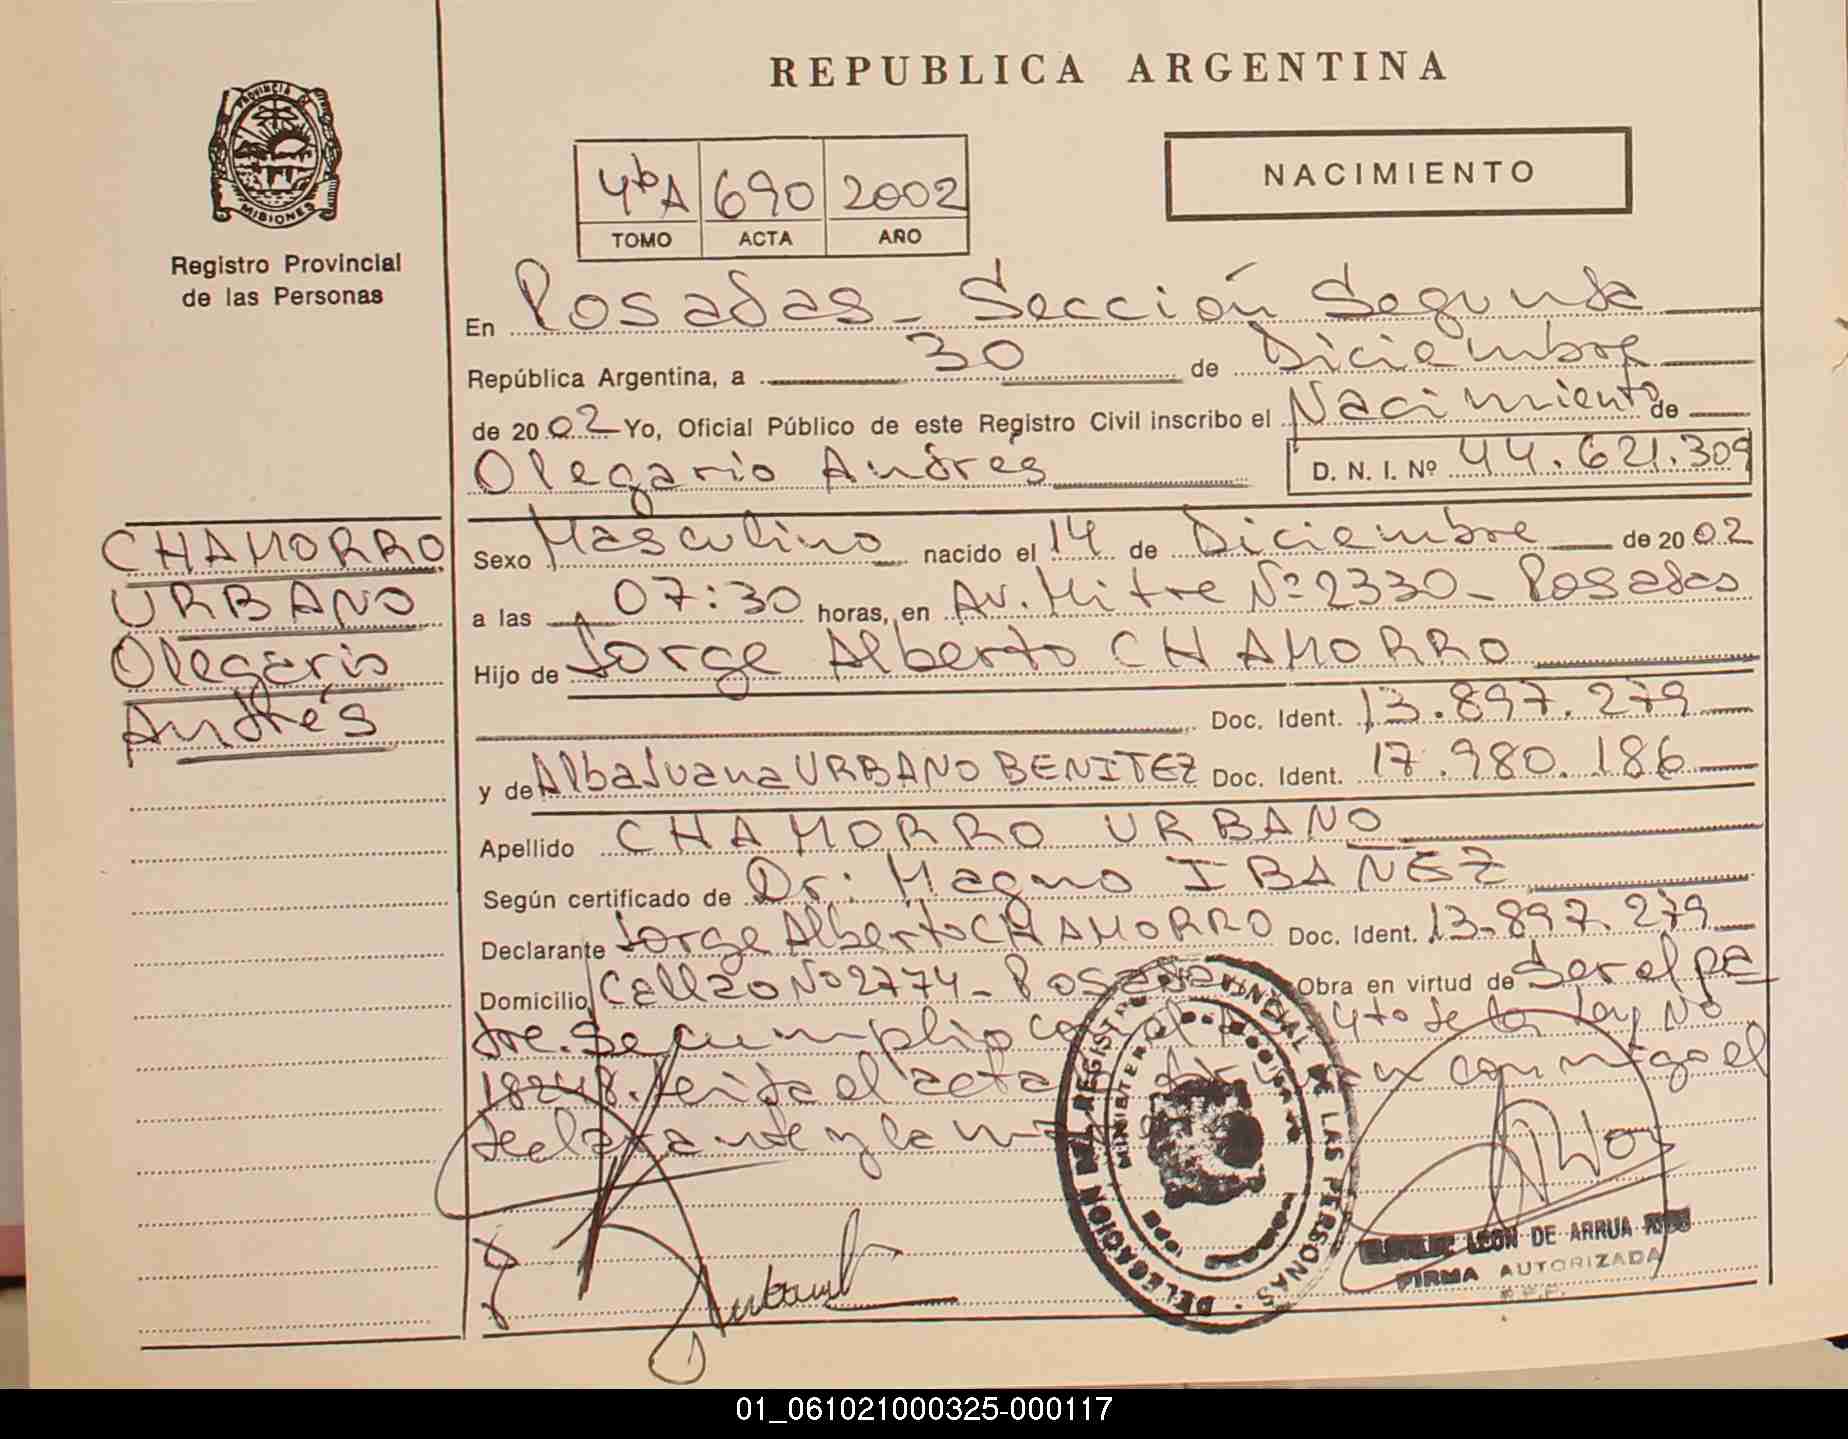 REPUBLICA ARGENTINA
PROVINCIA DE
MISIONES
Registro Provincial
de las Personas
4ºbA 690 2002
TOMO ACTA AÑO
NACIMIENTO
En Posadas - Sección Segunda
República Argentina, a 30 de Diciembre
de 2002 Yo, Oficial Público de este Registro Civil inscribo el Nacimiento de
Olegario Andres D. N. I. Nº 44.621.309
CHAMORRO
URBANO
Olegario
Andrés
Sexo Masculino nacido el 14 de Diciembre de 2002
a las 07:30 horas, en Av. Mitre Nº 2330 - Posadas
Hijo de Jorge Alberto CHAMORRO
Doc. Ident. 13.897.279
y de Alba Juana URBANO BENITEZ Doc. Ident. 17.980.186
Apellido CHAMORRO URBANO
Según certificado de Dr: Magno IBAÑEZ
Declarante Jorge Alberto CHAMORRO Doc. Ident. 13.897.279
Domicilio Calle 20 Nº 2774 - Posadas Obra en virtud de Ser el pa
dre. Se cumplio con el 4to de la Ley Nº
18248. Leida el acta conmigo el
declarante y la
DELEGACION REGISTRO PROVINCIAL DE LAS PERSONAS
MINISTERIO
LEON DE ARRUA
FIRMA AUTORIZADA
R.P.P.
01_061021000325-000117